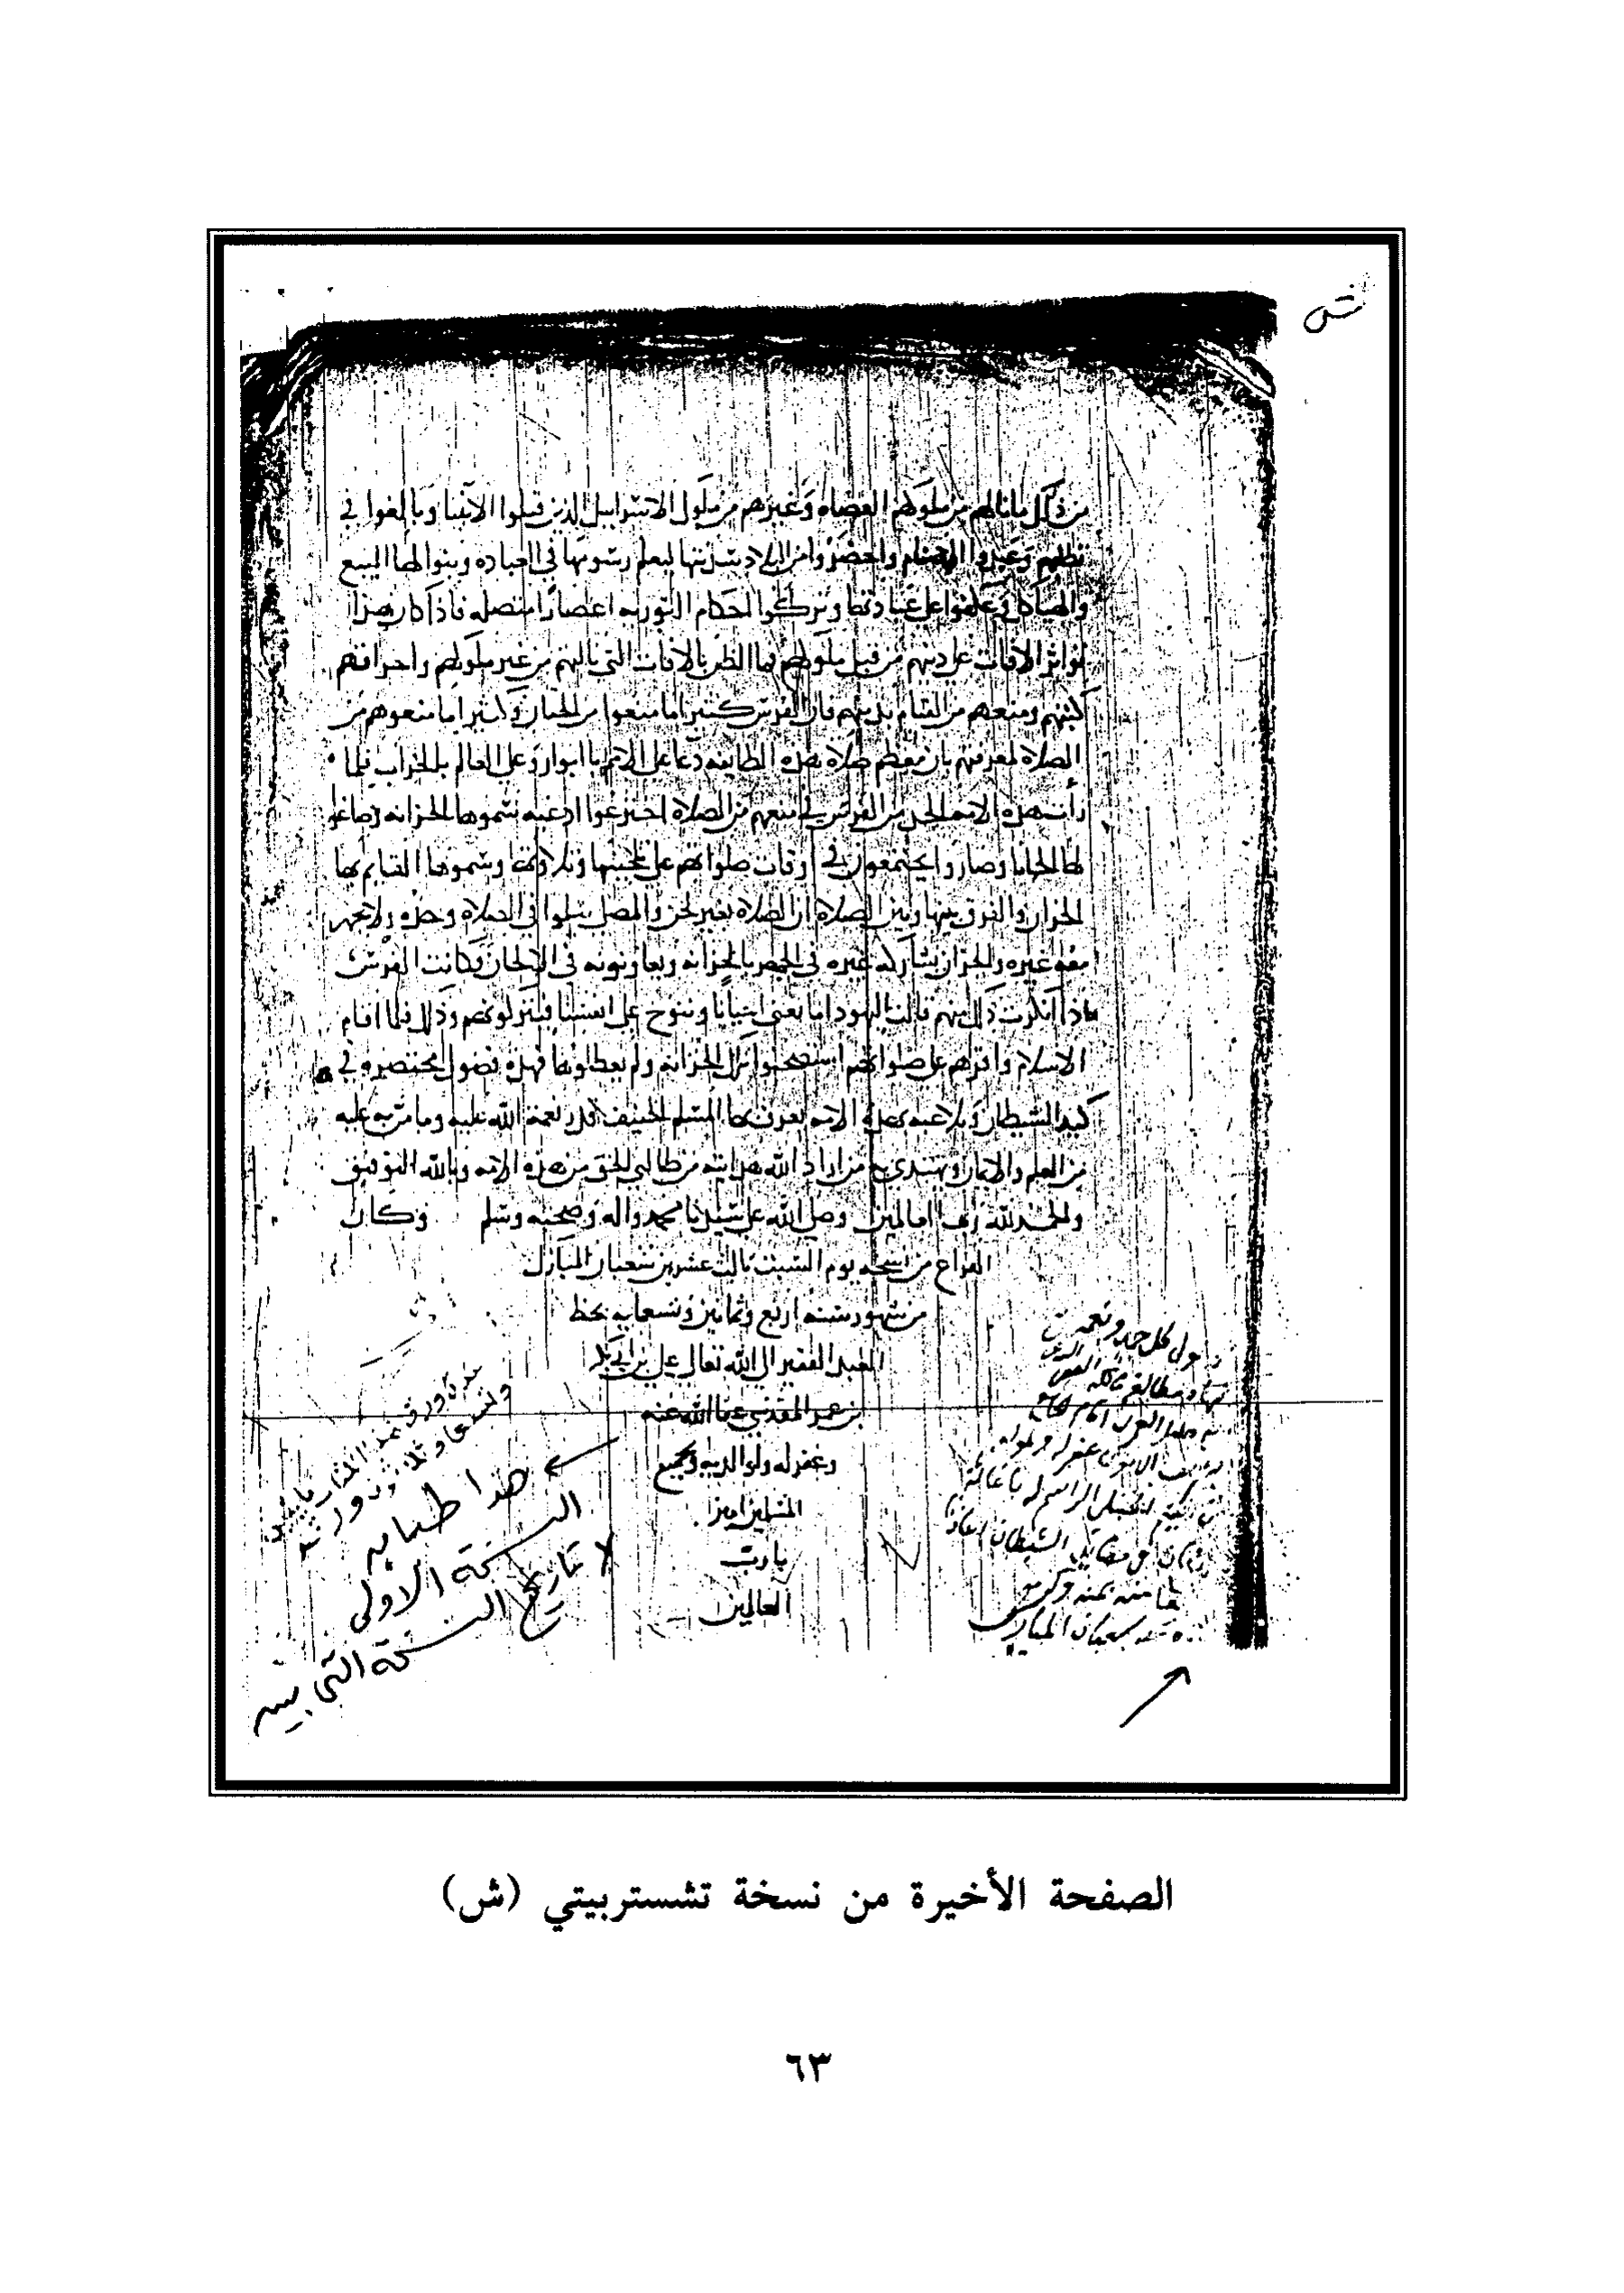 ش
من ذلك ما نالهم من ملوكهم العصاه وغيرهم من ملوك الاسرايليين الذين قتلوا الانبيا وبالغوا في
تطلبهم وعبدوا الاصنام واحضروا من البلاد سدنتها ليعلم رسومها في العباده وبنوا لها البيع
والهياكل وعكفوا على عبادتها وتركوا احكام التوريه اعصارا متصله فاذا كان هذا
تواتر الافات على دينهم من قبل ملوكهم فما الظن بالافات التي نالتهم من غير ملوكهم واحراقهم
كتبهم ومنعهم من القيام بدينهم فان الفرس كثيرا ما منعوا من الختان وكثيرا ما منعوهم من
الصلاة لمعرفتهم بان معظم صلاة هذه الطايفه دعا على الامم بالبوار وعلى العالم بالخراب فلما
رأت هذه الامه الجد من الفرس في منعهم من الصلاة اخترعوا ادعيه سموها الخزانه وصاغوا
لها الحانا وصاروا يجتمعون في اوقات صلواتهم على تلحينها وتلاوتها وسموها القايم بها
الحزان والفرق بينها وبين الصلاة ان الصلاة بغير لحن والمصلي يتلوا في الصلاة وحده ولا يجهر
معه غيره والحزان يشاركه غيره في الجهر بالخزانه ويعاونونه في الالحان فكانت الفرس
اذا انكرت ذلك منهم قالت اليهود انا نغني احيانا وننوح على انفسنا فيتركونهم وذلك فلما اقام
الاسلام واقرهم على صلواتهم استصحبوا تلك الخزانه ولم يعطلوها فهذه فصول مختصره في
كيد الشيطان وتلاعبه بهذه الامه يعرف بها المسلم الحنيف قدر نعمة الله عليه وما من به عليه
من العلم والايمان ويهتدي بها من اراد الله هدايته من طالبي الحق من هذه الامه وبالله التوفيق
والحمد لله رب العالمين وصلى الله على سيدنا محمد واله وصحبه وسلم وكان
الفراغ من نسخه يوم السبت ثالث عشرين شعبان المبارك
من شهور سنه اربع وثمانين وتسعمايه بخط
العبد الفقير الى الله تعالى علي بن ابي بكر
بن عمر المقدسي عفا الله عنه
وغفر له ولوالديه ولجميع
المسلمين امين
يارب
العالمين
هذا
النسخة الاولى
لا تاريخ النسخة
الصفحة الأخيرة من نسخة تشستربيتي (ش)
٦٣